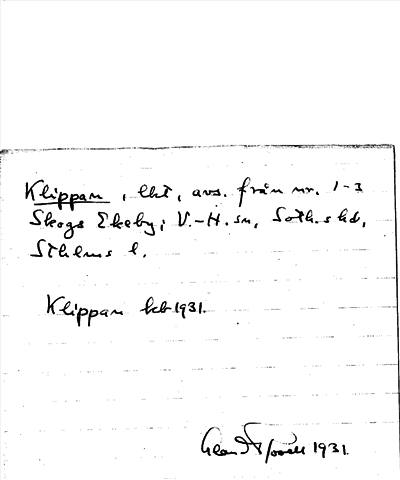 Klippan, lht, avs. från nr. 1-3
Skogs Ekeby; V.-H. sn, Soth. shd,
Sthlms l.
Klippan kb 1931.
1931.